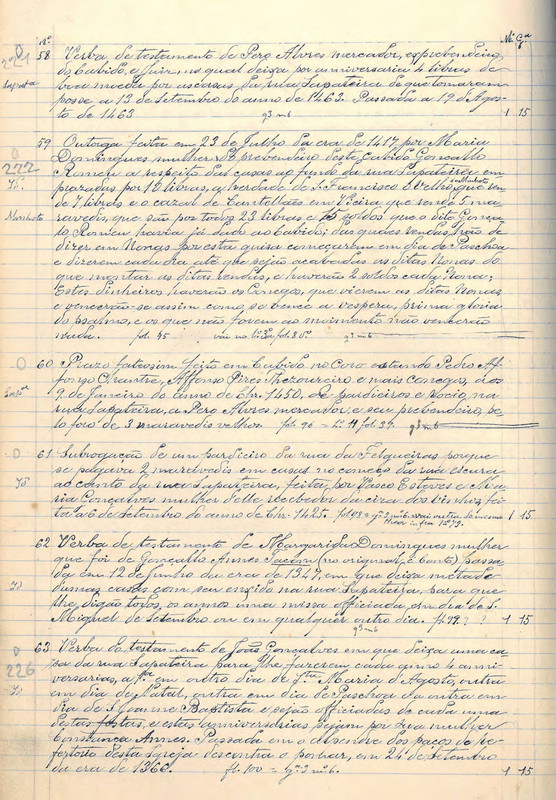 Nº Nº Gª
58 Verba de testamento de Pero Alvres mercador, e prebendeiro
do Cabido, e Juiz, no qual deixa por anniversario 4 libras de
boa moeda por as casas da rua Sapateira de que tomaram
posse a 13 de Setembro do anno de 1463. Passada a 19 d'Agos-
to de 1463 g3 m6 1 15
59 Outorga feita em 23 de Julho da era de 1417, por Maria
Domingues mulher do prebendeiro deste Cabido Goncallo
Romeu a respeito das casas ao fundo da rua Sapateira em-
prazadas por 12 libras, a herdade de S. Francisco o Velho que ren-
de 7 libras e o cazal de Cantellães em Vieira que rende 5 ma-
ravedis, que são por todos 23 libras e 15 soldos que o dito Gonça-
lo Romeu havia já dado ao Cabido; das quaes rendas, hão de
dizer em Nonas por esta guisa começarem em dia de Paschoa
e dizerem cada dia até que sejão acabadas as ditas Nonas do
que montar as ditas rendas, e haverão 2 soldos cada Nona;
Estes dinheiros, haverão os Conegos, que vierem as ditas Nonas
e vencerão-se assim como se vence a vespera, prima gloria
do psalmo, e os que não forem ao saimento não vencerão
nada. fol. 95 g3 m6
60 Prazo fateosim feito em Cabido no Coro estando Pedro Af-
fonso Chantre, Affonso Pires Thezoureiro e mais conegos, aos
9 de Janeiro do anno de Chr. 1450. de pardieiros e rocio, na
rua Sapateira, a Pero Alvres mercador e seu prebendeiro, pe-
lo foro de 3 maravedis velhos. fol. 96 g3 m6
61 Subrogação de um pardieiro da rua da Felgueiras porque
se pagava 2 maravedis em casas no começo da rua escura
ao canto da rua Sapateira, feita, por Vasco Esteves e Ma-
ria Goncalves mulher delle recebedor da ciza dos vinhos, fei-
ta a 6 de Setembro do anno de Chr. 1425. 1 15
62 Verba de testamento de Margarida Domingues mulher
que foi de Goncallo Annes (no original, é Canto) passa-
da em 12 de junho da era de 1347, em que deixa metade
dumas casas com seu enxido na rua Sapateira, para que
lhe digão todos os annos uma missa officiada em dia de S.
Miguel de Setembro ou em qualquer outro dia. fl. 99 ? g3 m6 1 15
63 Verba do testamento de João Goncalves em que deixa uma ca-
sa da rua Sapateira para lhe fazerem cada anno 4 anni-
versarios, a em outro dia de S. Maria d'Agosto, outra
em dia de Natal, outra em dia de Paschoa da outra em
dia de S. Joanne Baptista e sejão officiadas de cada uma
destas festas, e estas anniversarias sejam por sua mulher
Constança Annes. Passada em o alpendre dos paços do Re-
fertorio desta Igreja descontra o pombar, em 24 de Setembro
da era de 1366. fl. 100 = g.3 m.6. 1 15
222
226